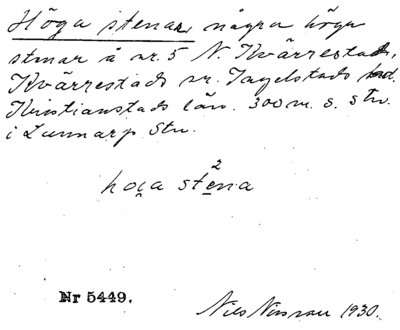 Höga stenar, några höga
stenar å nr. 5 N. Kvärrestad,
Kvärrestads sn. Ingelstads hd.
Kristianstads län. 300 m. s. stn.
i Lunnarp stn.
2
hoga stena
Nr 5449.
Nils Nilsson 1930.